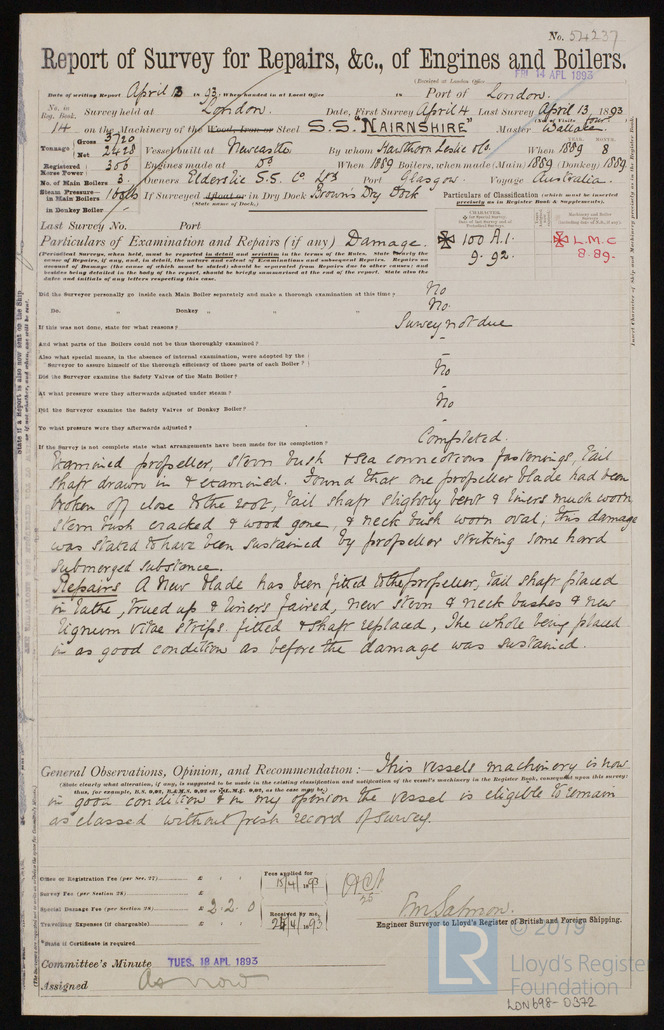 No. 54237
Report of Survey for Repairs, &c., of Engines and Boilers.
(Received at London Office FRI 14 APL 1893
Date of writing Report April 13 1893. When handed in at Local Office 18 Port of London.
No. in Reg. Book. Survey held at London. Date, First Survey April 4 Last Survey April 13, 1893
(No. of Visits four)
14 on the Machinery of the Wood, Iron or Steel S.S. "NAIRNSHIRE" Master Wallace
Tonnage Gross 3720 Net 2428 Vessel built at Newcastle By whom Hawthorn Leslie & Co. When 1889 YEAR. MONTH. 8
Registered Horse Power 306 Engines made at Do When 1889 Boilers, when made (Main) 1889 (Donkey) 1889
No. of Main Boilers 3. Owners Elderslie S.S. Co Ld Port Glasgow. Voyage Australia
Steam Pressure in Main Boilers 160 lbs If Surveyed Afloat or in Dry Dock Brown's Dry Dock
(State name of Dock.)
in Donkey Boiler
Particulars of Classification (which must be inserted precisely as in Register Book & Supplements).
Last Survey No. Port
Particulars of Examination and Repairs (if any) Damage.
✠ 100 A.1.
9.92.
✠ L.M.C
8.89.
(Periodical Surveys, when held, must be reported in detail and seriatim in the terms of the Rules. State clearly the
cause of Repairs, if any, and, in detail, the nature and extent of Examinations and subsequent Repairs. Repairs on
account of Damage (the cause of which must be stated) should be separated from Repairs due to other causes; and
besides being detailed in the body of the report, should be briefly summarised at the end of the report. State also the
dates and initials of any letters respecting this case.
Did the Surveyor personally go inside each Main Boiler separately and make a thorough examination at this time? No
Do. " Donkey " " " No.
If this was not done, state for what reasons? Survey not due
And what parts of the Boilers could not be thus thoroughly examined? -
Also what special means, in the absence of internal examination, were adopted by the
Surveyor to assure himself of the thorough efficiency of those parts of each Boiler? -
Did the Surveyor examine the Safety Valves of the Main Boiler? No
At what pressure were they afterwards adjusted under steam? -
Did the Surveyor examine the Safety Valves of Donkey Boiler? No
To what pressure were they afterwards adjusted? -
If the Survey is not complete state what arrangements have been made for its completion? Completed.
Examined propeller, stern bush & sea connections fastenings, tail
shaft drawn in & examined. Found that one propeller blade had been
broken off close to the root, tail shaft slightly bent & liners much worn
stern bush cracked & wood gone, & neck bush worn oval; this damage
was stated to have been sustained by propeller striking some hard
submerged substance.
Repairs A new blade has been fitted to the propeller, tail shaft placed
in lathe, trued up & liners faired, new stern & neck bushes & new
lignum vitae strips fitted & shaft replaced, The whole being placed
in as good condition as before the damage was sustained.
General Observations, Opinion, and Recommendation:— This vessels machinery is now
(State clearly what alteration, if any, is suggested to be made in the existing classification and notification of the vessel's machinery in the Register Book, consequent upon this survey:
in good condition & in my opinion the vessel is eligible to remain
as classed without fresh record of survey.
Office or Registration Fee (per Sec. 27) £ : :
Survey Fee (per Section 28) £ : :
Special Damage Fee (per Section 28) £ 2 . 2 . 0
Travelling Expenses (if chargeable) £ : :
Fees applied for
15/4/1893
Received by me,
25/4/1893
*State if Certificate is required
Engineer Surveyor to Lloyd's Register of British and Foreign Shipping.
Committee's Minute TUES. 18 APL 1893
Assigned As now
© 2019
LR
Lloyd's Register
Foundation
LDN698-0372